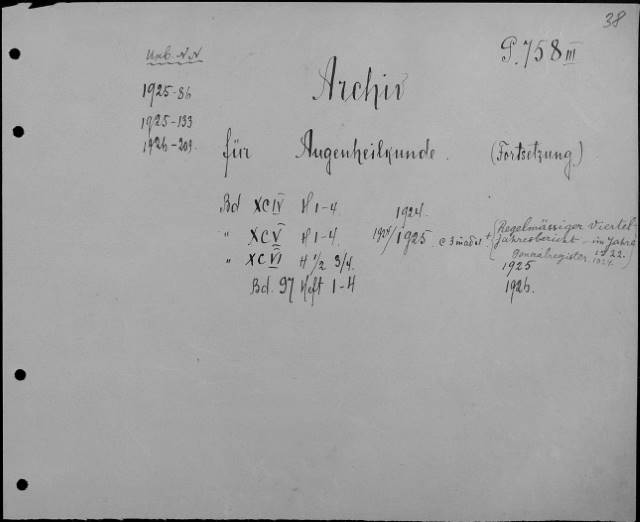 38
P. 758 III
1925-86
1925-133
1926-209.
Archiv
für Augenheilkunde. (Fortsetzung)
Bd XCIV H 1-4. 1924.
" XCV H 1-4. 1924/1925 + (Regelmässiger Viertel-
Jahresbericht - im Jahre
1922.
" XCVI H 1/2 3/4. 1925
Bd. 97 Heft 1-4 1926.